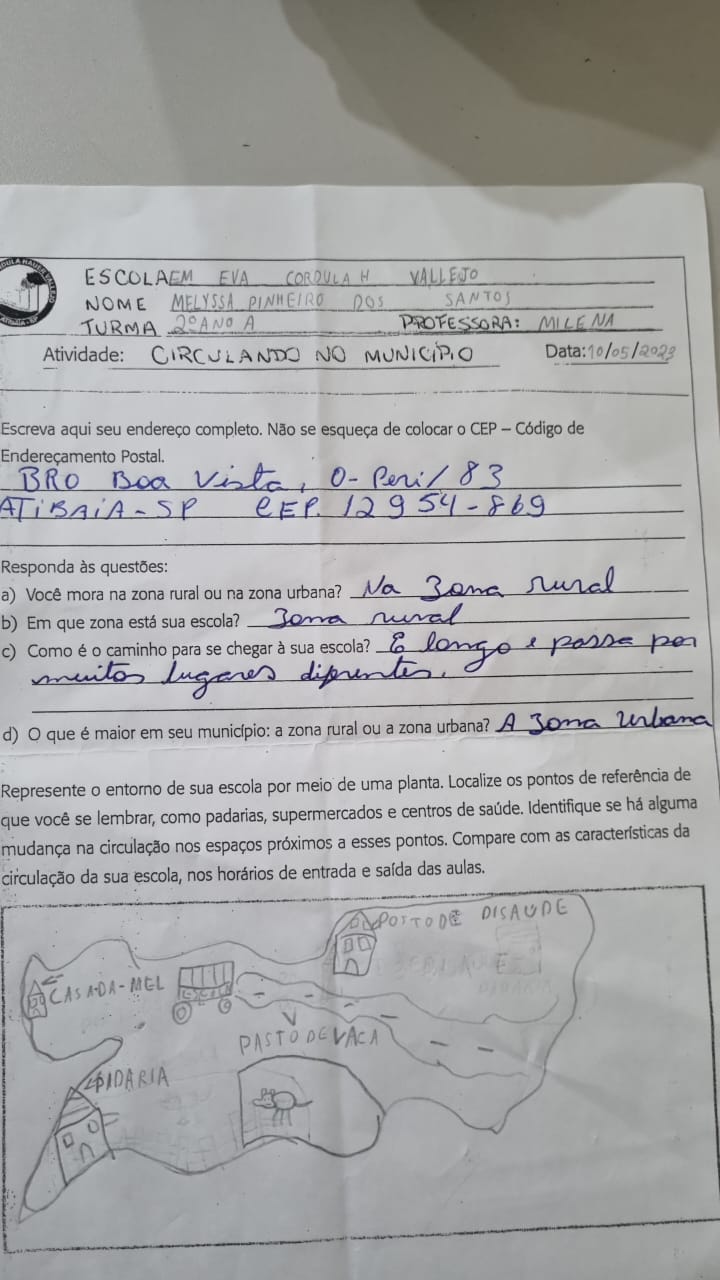 ESCOLA EM EVA CORDULA H VALLEJO
NOME MELYSSA PINHEIRO DOS SANTOS
TURMA 2º ANO A PROFESSORA: MILENA
Atividade: CIRCULANDO NO MUNICÍPIO Data: 10/05/2023
Escreva aqui seu endereço completo. Não se esqueça de colocar o CEP – Código de
Endereçamento Postal.
BRO Boa Vista, 83
ATIBAIA-SP CEP. 12954-869
Responda às questões:
a) Você mora na zona rural ou na zona urbana? Na Zona rural
b) Em que zona está sua escola? Zona rural
c) Como é o caminho para se chegar à sua escola? É longo e passa por
muitos lugares diprentes.
d) O que é maior em seu município: a zona rural ou a zona urbana? A Zona Urbana
Represente o entorno de sua escola por meio de uma planta. Localize os pontos de referência de
que você se lembrar, como padarias, supermercados e centros de saúde. Identifique se há alguma
mudança na circulação nos espaços próximos a esses pontos. Compare com as características da
circulação da sua escola, nos horários de entrada e saída das aulas.
POSTO DE DISAUDE
CASA-DA-MEL
PASTO DE VACA
PIDARIA